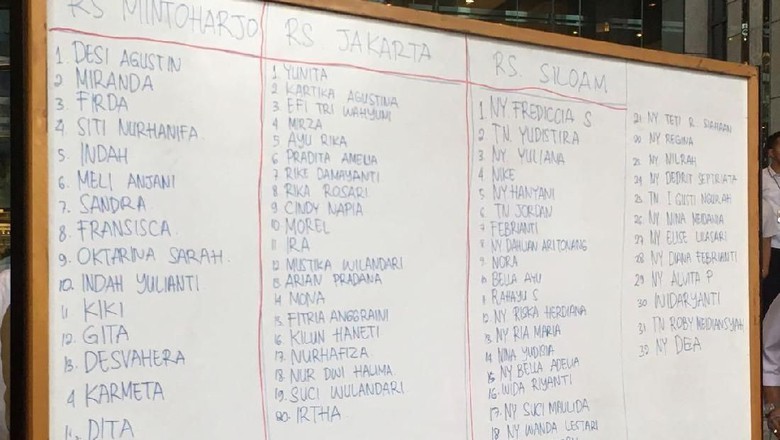 RS MINTOHARJO
1. DESI AGUSTIN
2 MIRANDA
3 FIRDA
4. SITI NURHANIFA.
5. INDAH
6. MELI ANJANI
7. SANDRA
8. FRANSISCA.
9. OKTARINA SARAH.
10. INDAH YULIANTI
11 KIKI
12. GITA
13. DESVAHERA
4 KARMETA
DITA
RS JAKARTA
1. YUNITA
2 KARTIKA AGUSTINA
3 EFI TRI WAHYUNI
4 MIRZA
5 AYU RIKA
6 PRADITA AMELIA
7 RIKE DAMAYANTI
8 RIKA ROSARI
9 CINDY NAPIA
10 MOREL
11 IRA
12 MUSTIKA WILANDARI
13. ARIAN PRADANA
14 MONA
15. FITRIA ANGGRAINI
16 KILUN HANETI
17. NURHAFIZA
18 NUR DWI HALIMA
19. SUCI WULANDARI
20. IRTHA
RS. SILOAM
1 NY FREDICCIA S
2 TN YUDISTIRA
3 NY. YULIANA
4 NIKE
5 NY HANYANI
6 TN JORDAN
7 FEBRIANTI
8 NY DAHLIAN ARITONANG
9 NORA
10 BELLA AYU
11 RAHAYU S
12 NY RISKA HERDIANA
13. NY RIA MARIA
14 NINA YUDISIA
15 NY BELLA ADELIA
16. WIDA RIYANTI
17. NY SUCI MAULIDA
18 NY WANDA LESTARI
21 NY TETI R. SIAHAAN
NY REGINA
NY NILRAH
24 NY SEPTRIATA
25 TN I GUSTI NGURAH
26 NY NINA MEIDANIA
27 NY ELISE LILASARI
28 NY DIANA FEBRIANTI
29 NY ALVITA P
30 WIDARYANTI
31 TN ROBY MEIDIANSYAH
32 NY DEA